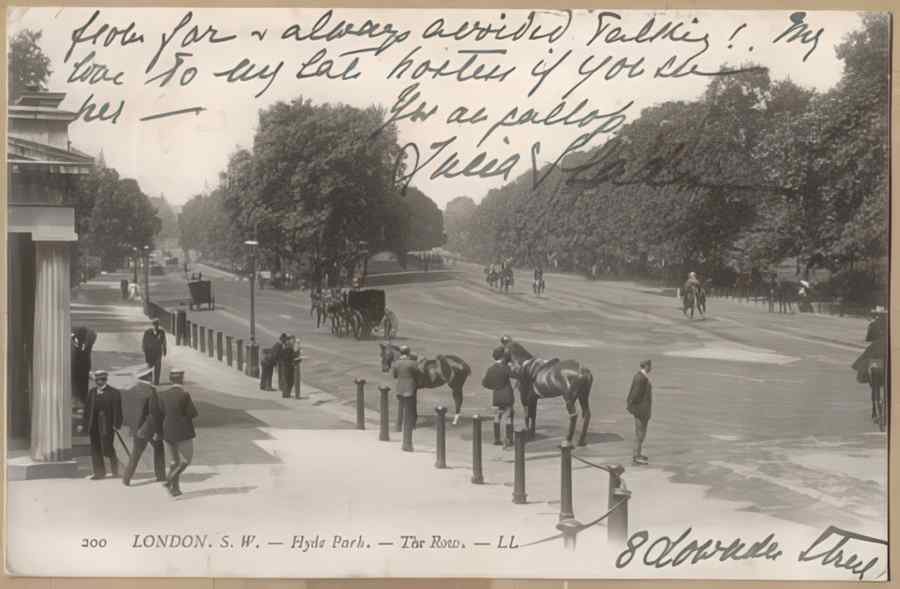 from far & always avoided talking! My
love to my late hostess if you see
her —
Yrs au gallop
Julia
200 LONDON. S. W. — Hyde Park. — The Row. — LL
8 Lowndes Street